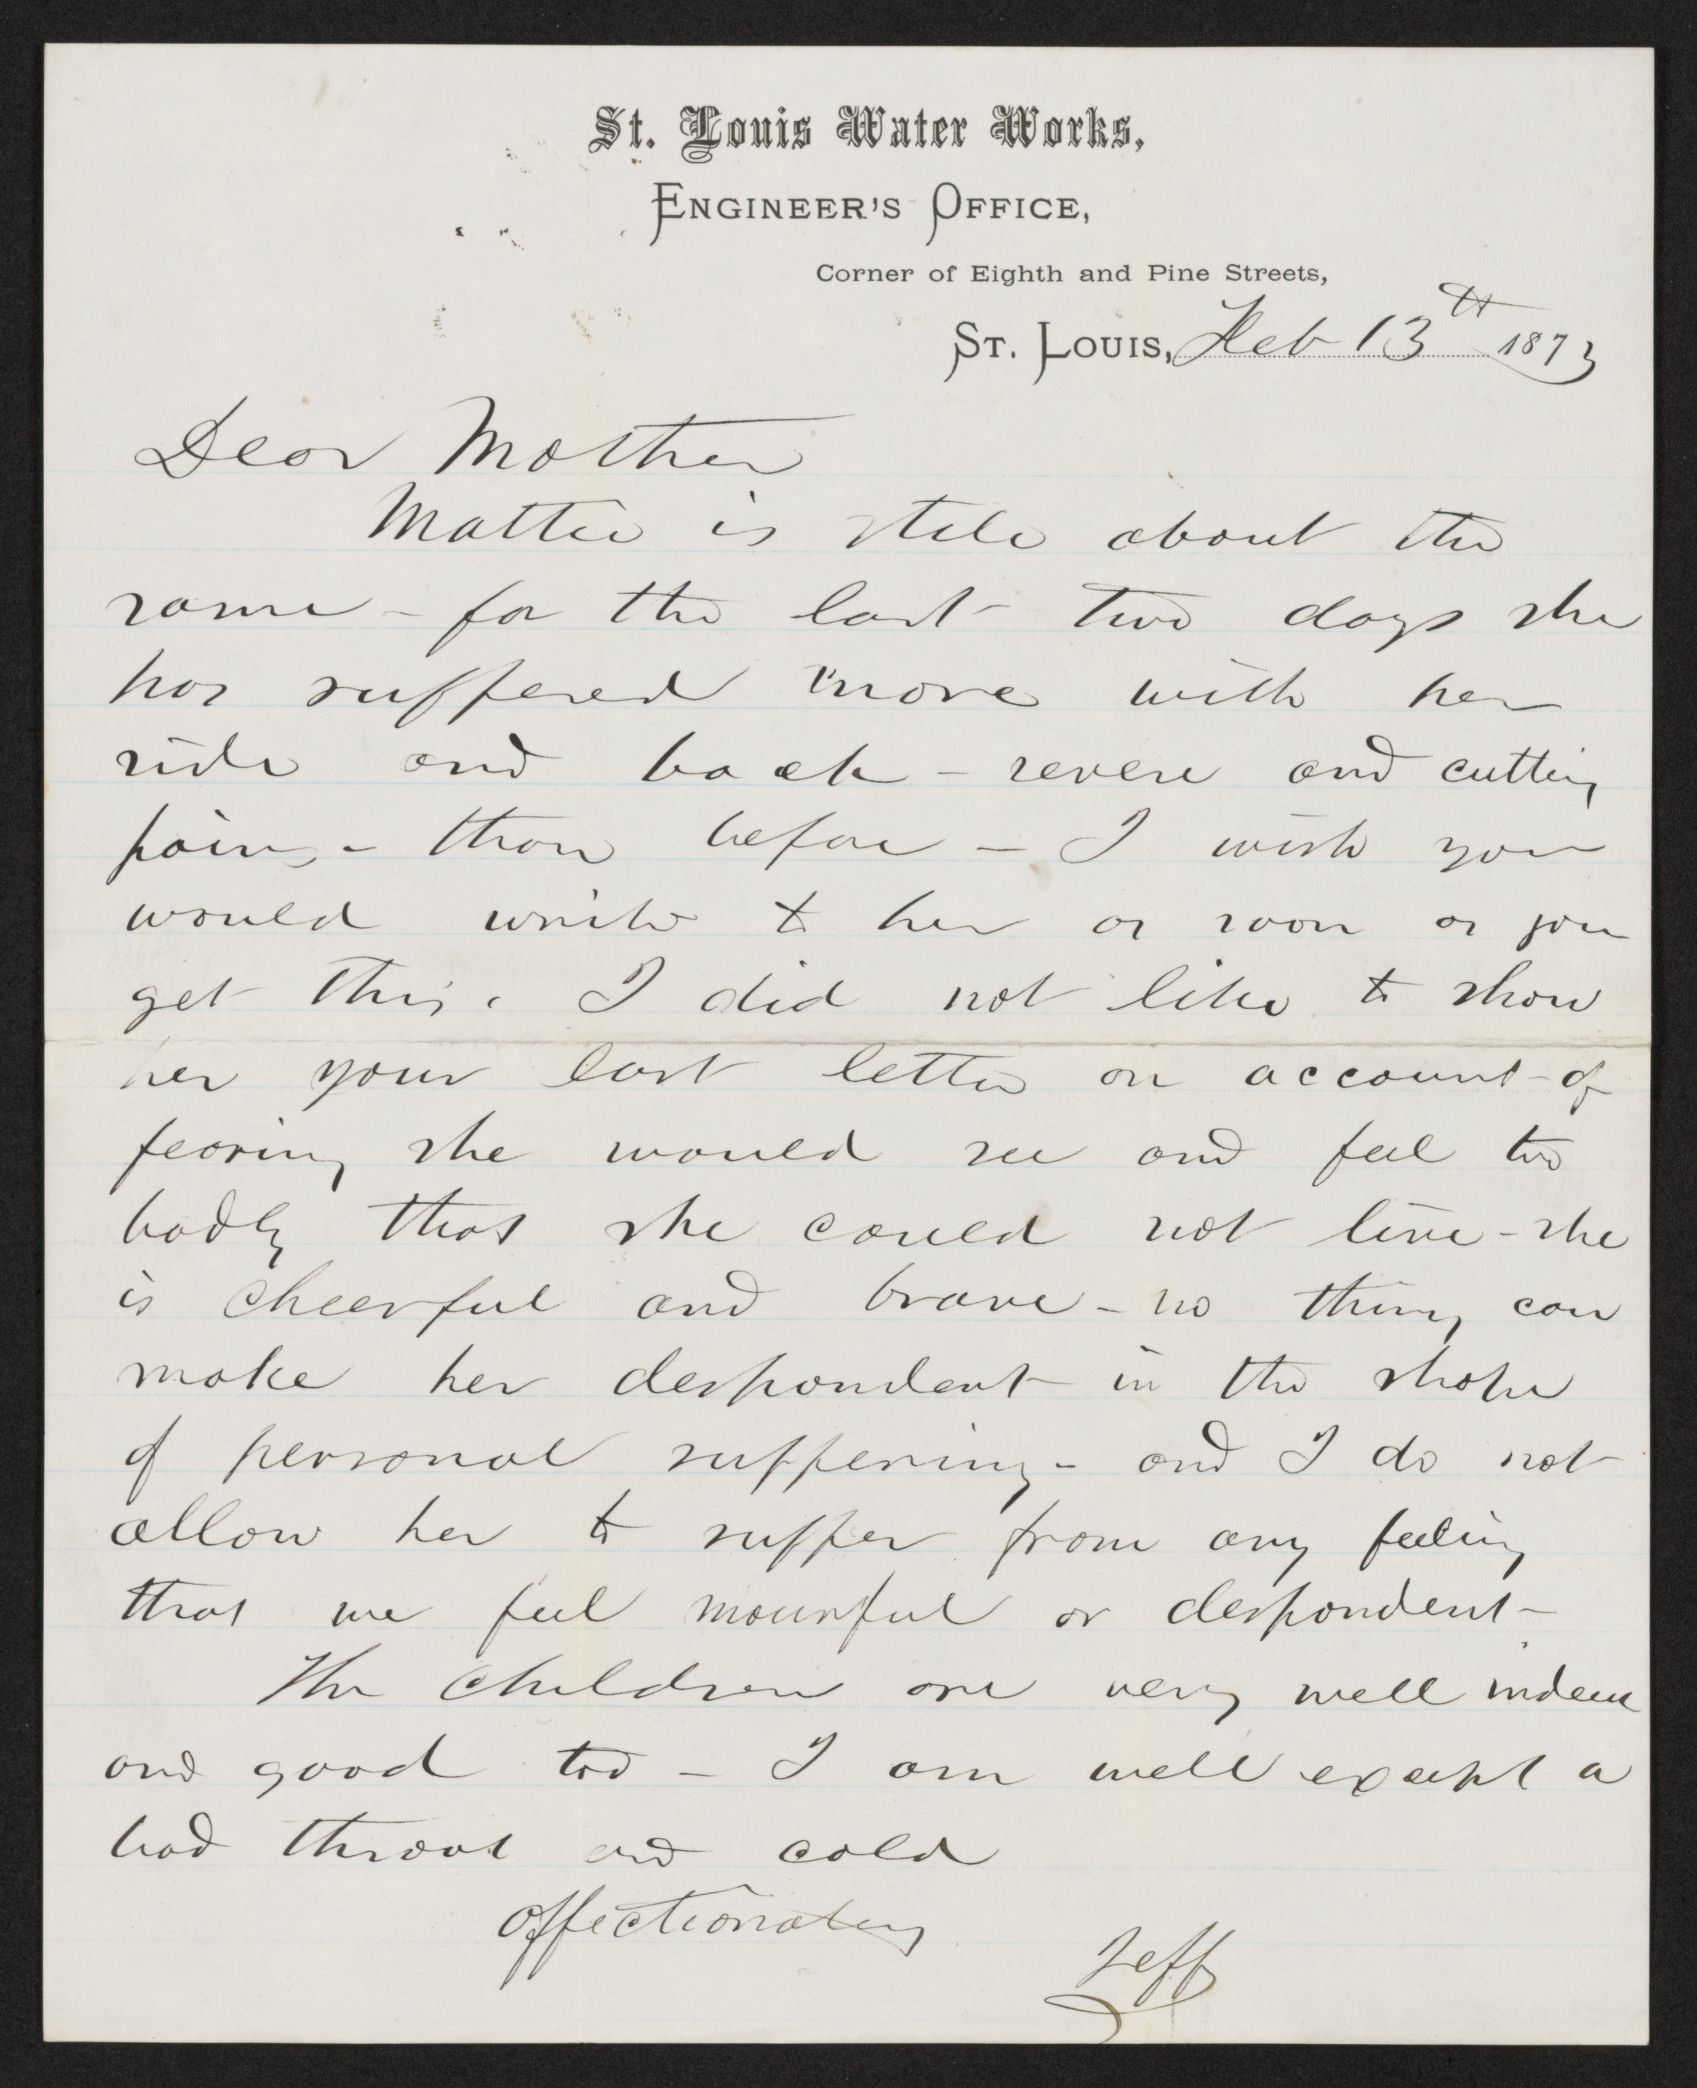 St. Louis Water Works,
Engineer's Office,
Corner of Eighth and Pine Streets,
St. Louis, Feb 13th 1873
Dear Mother
Mattie is still about the
same - for the last two days she
has suffered more with her
side and back - severe and cutting
pains - than before - I wish you
would write to her as soon as you
get this. I did not like to show
her your last letter on account of
fearing she would see and feel too
badly that she could not live - she
is cheerful and brave - no thing can
make her despondent in the shape
of personal suffering - and I do not
allow her to suffer from any feeling
that we feel mournful or despondent -
The children are very well indeed
and good too - I am well except a
bad throat and cold
Affectionately
Jeff